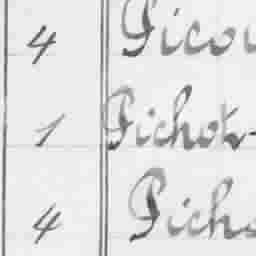 4 Picou
1 Pichot-
4 Picho